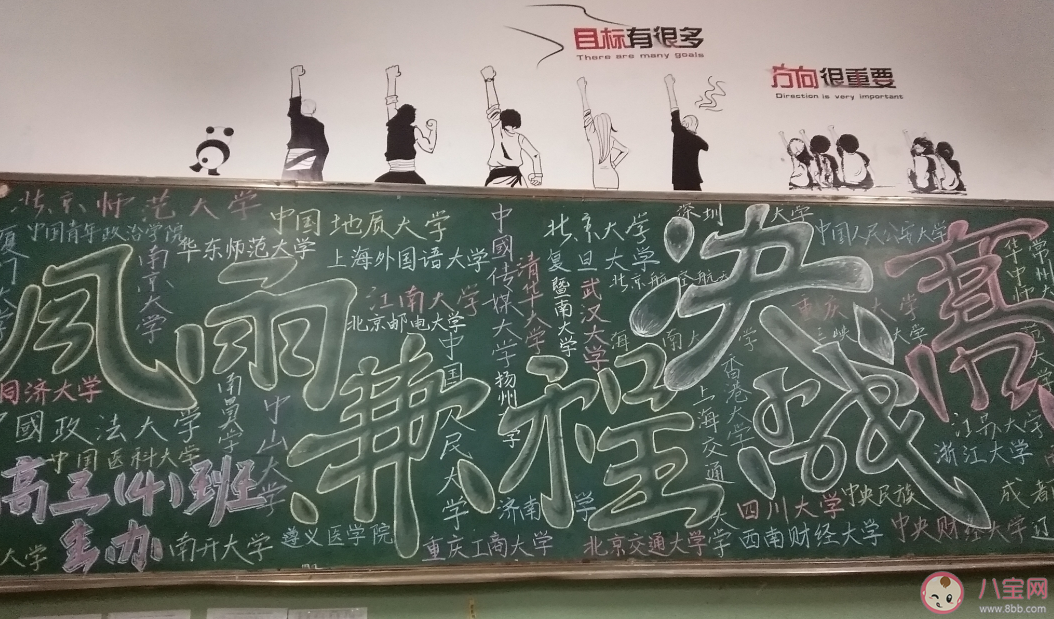 目标有很多
There are many goals
方向很重要
Direction is very important
北京师范大学
中国青年政治学院
华东师范大学
南京大学
中国地质大学
上海外国语大学
江南大学
北京邮电大学
中國传媒大学
清华大学
北京大学
复旦大学
北京航空航
暨南大学
武汉大学
深圳 大学
中国人民公安大学
重庆 大学
三峡 大学
华中师范大学
常州大
风雨兼程决战高
同济大学
中國政法大学
中国医科大学
南昌大学
中山大学
中国人民大学
扬州大学
海南大学
香港大学
上海交通大学
江苏大学
浙江大学
成都
高三(4)班
主办
大学
南开大学
遵义医学院
重庆工商大学
济南 学
北京交通大学
四川大学
中央民族
西南财经大学
中央财经大学
辽
八宝网
www.8bb.com